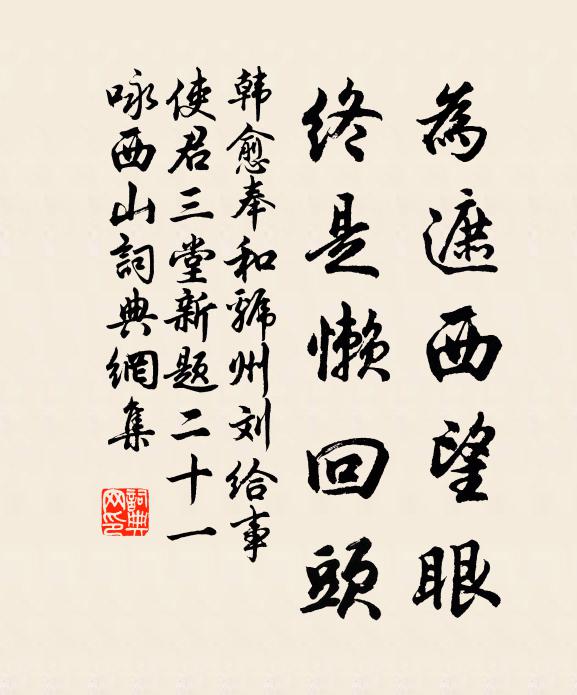 為遮西望眼
終是懶回頭
韓愈奉和虢州刘給事
使君三堂新題二十一
咏西山詞典網集
詞典网印